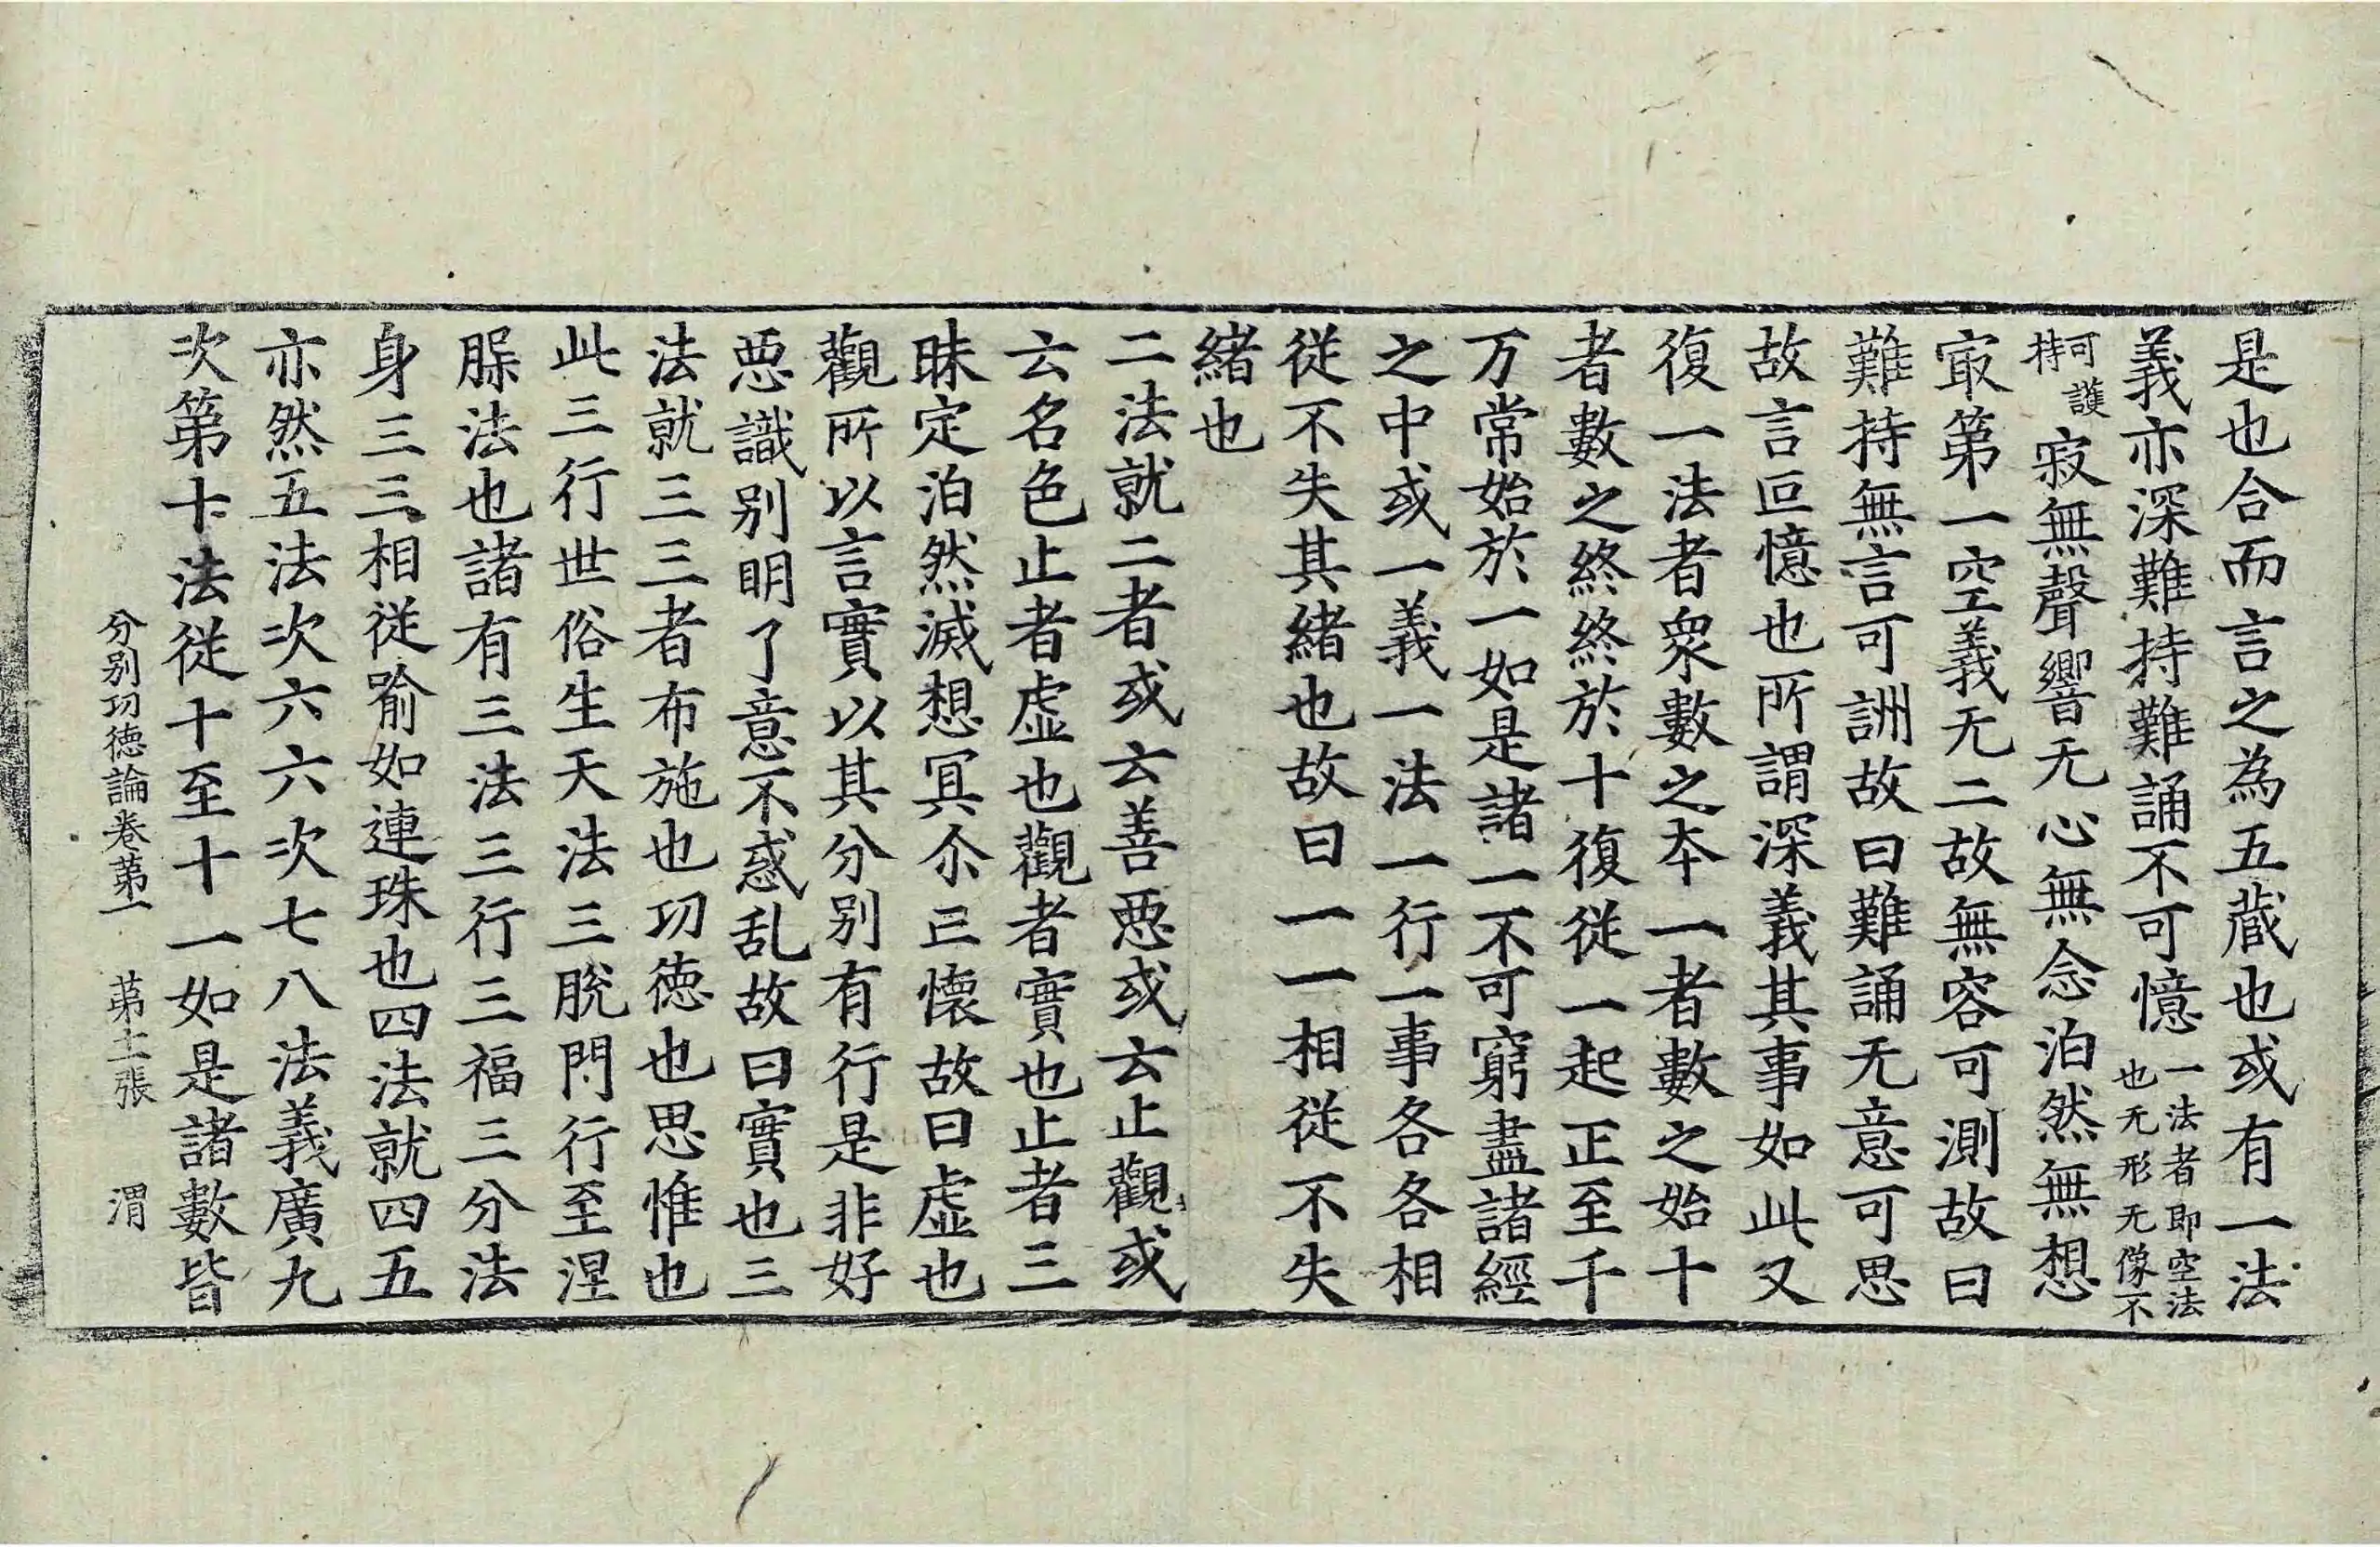 是也合而言之為五蔵也或有一法
義亦深難持難誦不可憶一法者即空法也无形无像不
可護持寂無聲響无心無念泊然無想
㝡第一空義无二故無容可測故曰
難持無言可詶故曰難誦无意可思
故言叵憶也所謂深義其事如此又
復一法者衆數之本一者數之始十
者數之終終於十復從一起正至千
万常始於一如是諸一不可窮盡諸經
之中或一義一法一行一事各各相
從不失其緒也故曰一一相從不失
緒也
二法就二者或云善惡或云止觀或
云名色止者虛也觀者實也止者三
昧定泊然滅想冥尒正懷故曰虛也
觀所以言實以其分別有行是非好
惡識別明了意不惑乱故曰實也三
法就三三者布施也功德也思惟也
此三行世俗生天法三脫門行至涅
腂法也諸有三法三行三福三分法
身三三相從喻如連珠也四法就四五
亦然五法次六六次七八法義廣九
次第十法從十至十一如是諸數皆
分別功德論卷第一 第十二張 渭